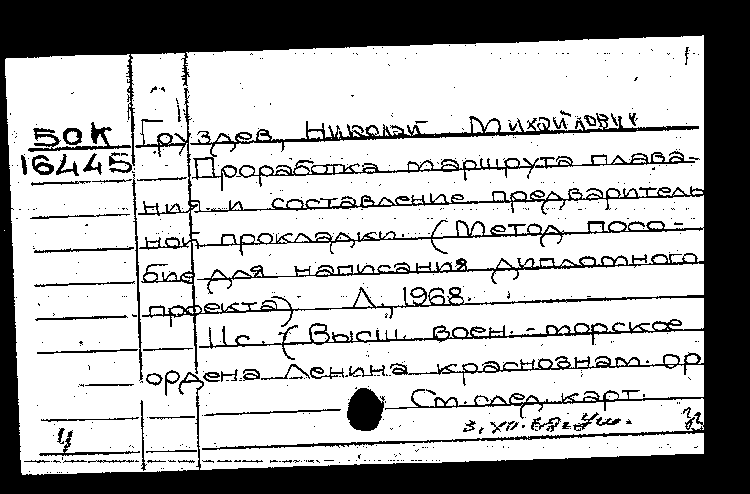 1
50К Груздев, Николай Михайлович
16445 Проработка маршрута плава-
ния и составление предваритель
ной прокладки. (Метод. посо-
бие для написания дипломного
проекта) Л., 1968.
11с. (Высш. воен.-морское
ордена Ленина краснознам. ор
См. след. карт.
ч